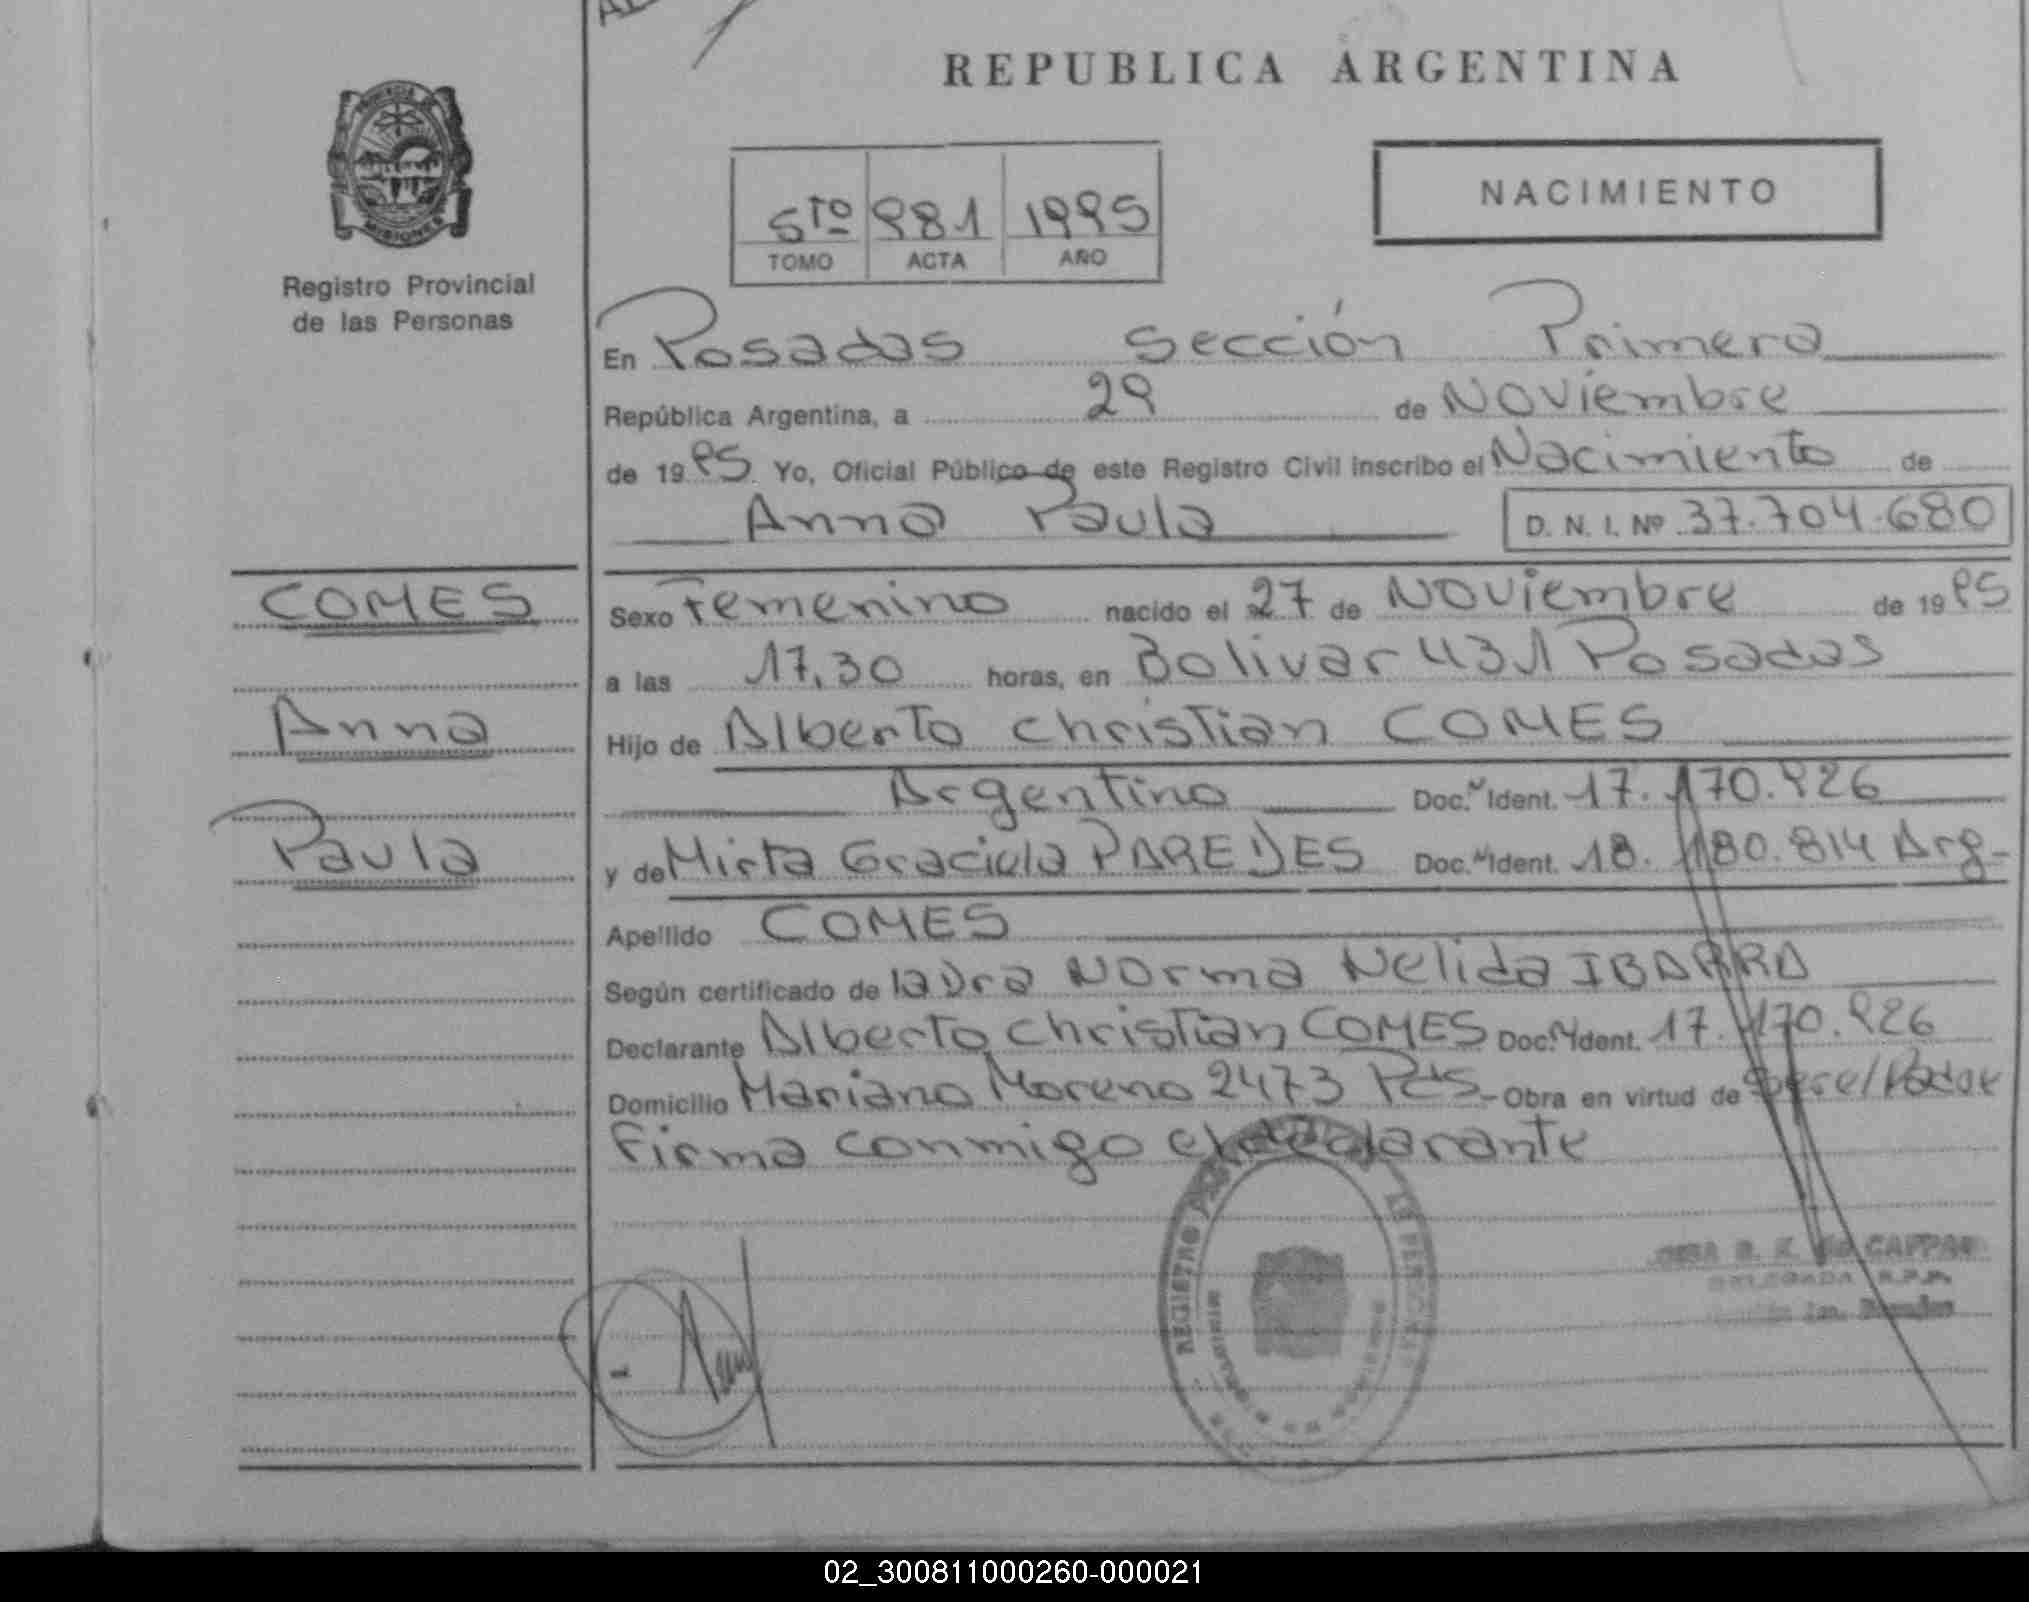 REPUBLICA ARGENTINA
PROVINCIA DE
MISIONES
Registro Provincial
de las Personas
5to 981 1995
TOMO ACTA AÑO
NACIMIENTO
En Posadas Sección Primera
República Argentina, a 29 de Noviembre
de 1995 Yo, Oficial Público de este Registro Civil inscribo el Nacimiento de
Anna Paula D. N. I. Nº 37.704.680
COMES
Anna
Paula
Sexo Femenino nacido el 27 de Noviembre de 1995
a las 17,30 horas, en Bolivar 431 Posadas
Hijo de Alberto Christian COMES
Argentino Doc. Ident. 17.170.926
y de Mirta Graciela PAREDES Doc. Ident. 18.180.814 Arg-
Apellido COMES
Según certificado de la Dra Norma Nelida IBARRA
Declarante Alberto Christian COMES Doc. Ident. 17.170.926
Domicilio Mariano Moreno 2473 Pdas- Obra en virtud de ser el Padre
Firma conmigo el declarante
REGISTRO
DELEGADA R.P.P.
02_300811000260-000021